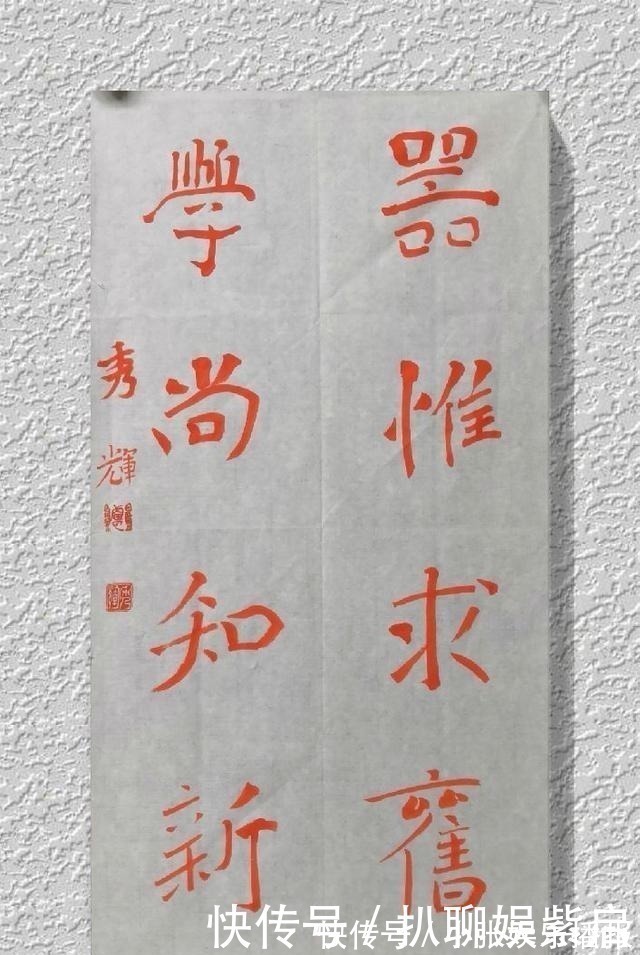 器惟求舊
學尚知新
秀輝
快传号 / 扒聊娱紫扇
快传号 /